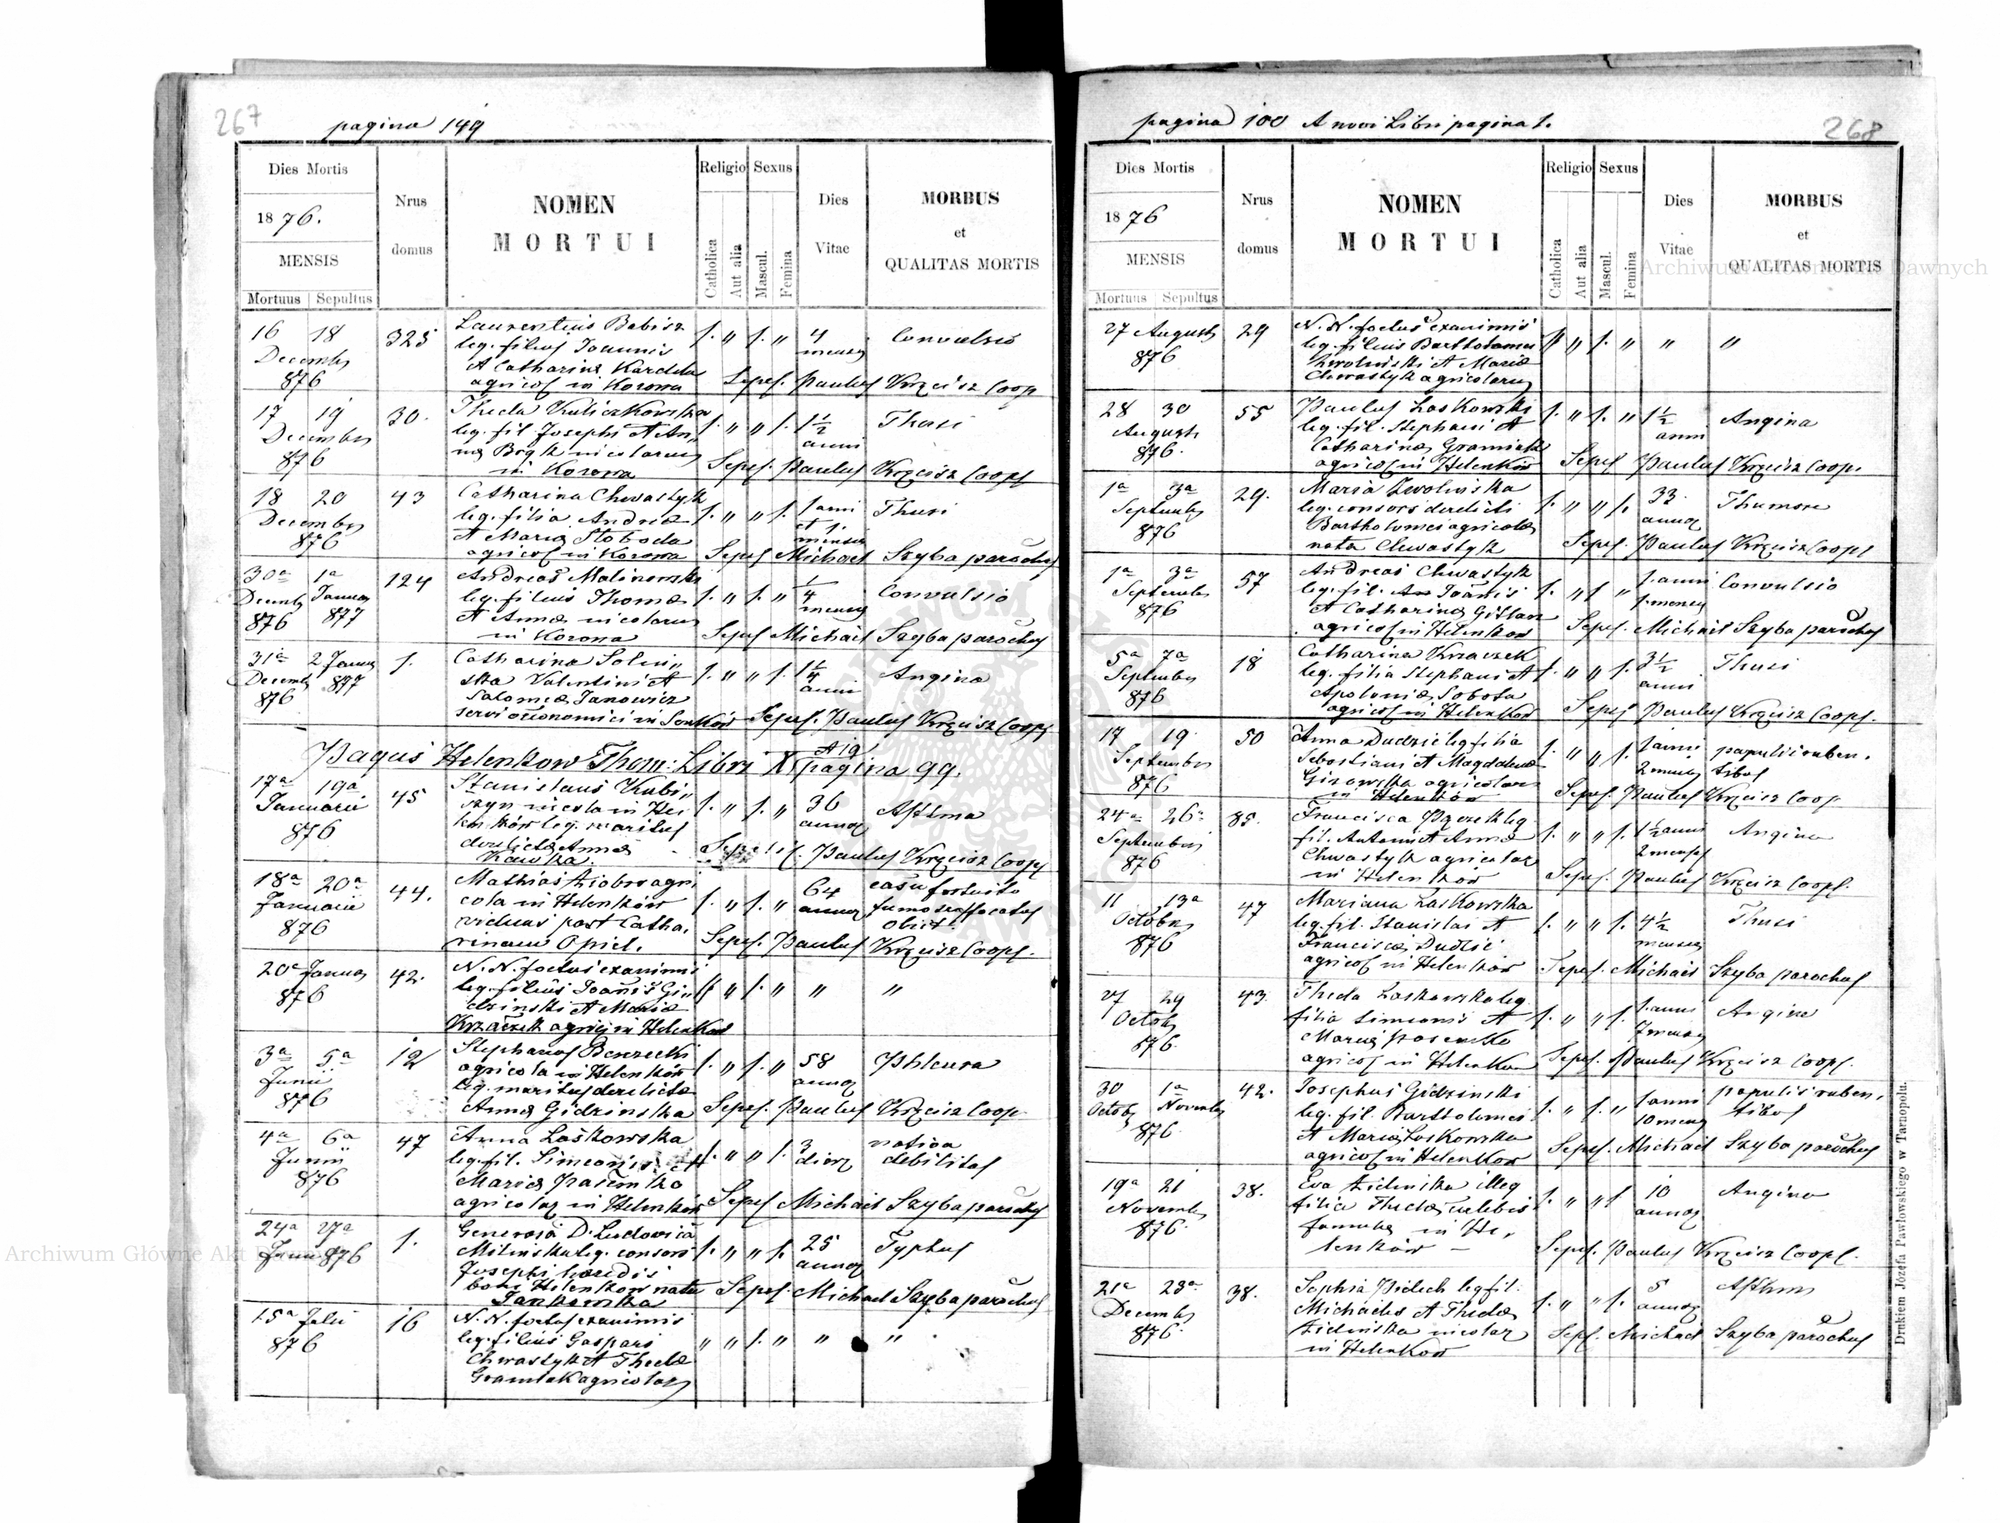 267
pagina 149
Dies Mortis
1876.
MENSIS
Mortuus Sepultus
Nrus
domus
NOMEN
MORTUI
Religio
Catholica
Aut alia
Sexus
Mascul.
Femina
Dies
Vitae
MORBUS
et
QUALITAS MORTIS
16 18
Decembr
876
325
Laurentius Babisz
leg. filius Joannis
et Catharina Kardela
agricol in Korowa
1. " 1. "
4
mens
Convulsio
Sepel. Paulus Krzeisz Coop
17 19
Decembr
876
30.
Thecla
leg. fil. Josephi et An,
in Korowa
1. " " 1.
1½
anni
Thusi
Sepel. Paulus Krzeisz Coop
18 20
Decembr
876
43
Catharina Chwastyk
leg. filia Andreæ
et Maria Słoboda
agricol in Korowa
1. " " 1.
1 anni
et 1
mensis
Thusi
Sepel Michael Szyba parochus
30a 1a
Decemb Januar
876 877
124
Andreas Malinowski
leg. filius Thomæ
et Annæ
in Korowa
1. " 1. "
¼
mens
Convulsio
Sepel Michael Szyba parochus
31a 2 Januar
Decemb 877
876
1.
Catharina Solin,,
ska Valentini et
Salomea Janowicz
servi oeconomici in Lonków
1. " " 1.
1¼
anni
Angina
Sepel. Paulus Krzeisz Coop
Pagus Helenkow Thom: Libri X pagina 99.
17a 19a
Januarii
876
45
Stanislaus Kubi,,
szyn in He
lenków leg. maritus
derelictæ Annæ
1. " 1. "
36
annor
Asthma
Sepel. Paulus Krzeisz Coop
18a 20a
Januarii
876
44.
Mathias Ziobro agri
cola in Helenków
viduus post Catha,
rinam Opiel.
1. " 1. "
64
annor
casu fortuito
fumo suffocatus
obiit
Sepel. Paulus Krzeisz Coop.
20a Januar
876
42.
N. N. foetus exanimis
leg. filius Joannis Gi,,
dzinski et Mariæ
Krzaczek agric in Helenkow
" "
3a 5a
Junii
876
12
Stephanus Benzecki
agricola in Helenków
leg. maritus derelictæ
Annæ Gidzinska
1. " 1. "
58
annor
Phleura
Sepel. Paulus Krzeisz Coop.
4a 6a
Junii
876
47
Anna Laskowska
leg. fil. Simeonis et
Mariæ
agricolar in Helenków
1. " " 1.
3
dierz
nativa
debilitas
Sepel Michael Szyba parochus
24a 27a
Junii 876
1.
Generosa D. Ludovica
Milinska leg. consors
Josephi hæredis
bonor Helenkow nata
Jankowska
1. " " 1.
25
annor
Typhus
Sepel. Michael Szyba parochus
15a Julii
876
16
N. N. foetus exanimis
leg. filius Gaspari
Chwastyk et Theclæ
Gramiak agricolar
" " 1. "
" "
pagina 100 A novi Libri pagina 1.
268
Dies Mortis
1876
MENSIS
Mortuus Sepultus
Nrus
domus
NOMEN
MORTUI
Religio
Catholica
Aut alia
Sexus
Mascul.
Femina
Dies
Vitae
MORBUS
et
QUALITAS MORTIS
27 Augusti
876
29
N. N. foetus exanimis
leg. filius Bartholomei
Zwolinski et Mariæ
Chwastyk agricolarum
" "
28 30
Augusti
876.
55
Paulus Laskowski
leg. fil. Stephani et
Catharinæ Gramiak
agricol in Helenków
1. " 1. "
1½
anni
Angina
Sepel Paulus Krzeisz Coop.
1a 3a
Septembr
876
29.
Maria Zwolinska
leg. consors derelicti
Bartholomei agricolæ
nata Chwastyk
1. " " 1.
33
annor
Thumore
Sepel. Paulus Krzeisz Coop
1a 3a
Septembr
876
57
Andreas Chwastyk
leg. fil. Joannis
et Catharinæ
agricol in Helenków
1 anni
1 mens
Convulsio
Sepel. Michael Szyba parochus
5a 7a
Septembr
876
18
Catharina Krzaczek
leg. filia Stephani et
Apoloniæ Sobota
agricol in Helenkow
1. " " 1.
3½
anni
Thusi
Sepel Paulus Krzeisz Coop.
17 19
Septembr
876
50
Anna Dudzic leg filia
Sebastiani et Magdalenæ
Gizowska agricolar
in Helenków
1. " " 1.
1 anni
2 mens
papulis ruben,
tibus
Sepel. Paulus Krzeisz Coop
24a 26a
Septembris
876
85.
Francisca
fil. Antoni et Annæ
Chwastyk agricolar
in Helenków
1. " " 1.
1½ anni
2 mens
Angina
Sepel. Paulus Krzeisz Coop.
11 13a
Octobr
876
47
Mariana Laskowska
leg. fil. Stanislai et
Franciscæ Dudzic
agricol in Helenków
1. " " 1.
4½
mens
Thusi
Sepel. Michael Szyba parochus
27 29
Octob
876.
43.
Thecla Laskowska leg.
filia Simeonis et
Mariæ
agricol in Helenkow
1. " " 1.
1 anni
7 mens
Angina
Sepel. Paulus Krzeisz Coop.
30 1a
Octobr Novembr
876.
42.
Josephus Gidzinski
leg. fil. Bartholomei
et Mariæ Laskowska
agricol in Helenkow
1. " 1. "
1 anni
10 mens
papulis ruben,
tibus
Sepel. Michael Szyba parochus
19a 21
Novembr
876.
38.
Eva Zielinska illeg
filia Theclæ cælebis
famulæ in He,
lenków —
1. " " 1
10
annor
Angina
Sepel. Paulus Krzeisz Coop.
21a 23a
Decembr
876.
38.
Sophia Bidech leg fil.
Michaelis et Theclæ
Zielinska
in Helenkow
1. " " 1.
5
annor
Asthma
Sepel. Michael Szyba parochus
Drukiem Józefa Pawłowskiego w Tarnopolu.
Archiwum Główne Akt Dawnych